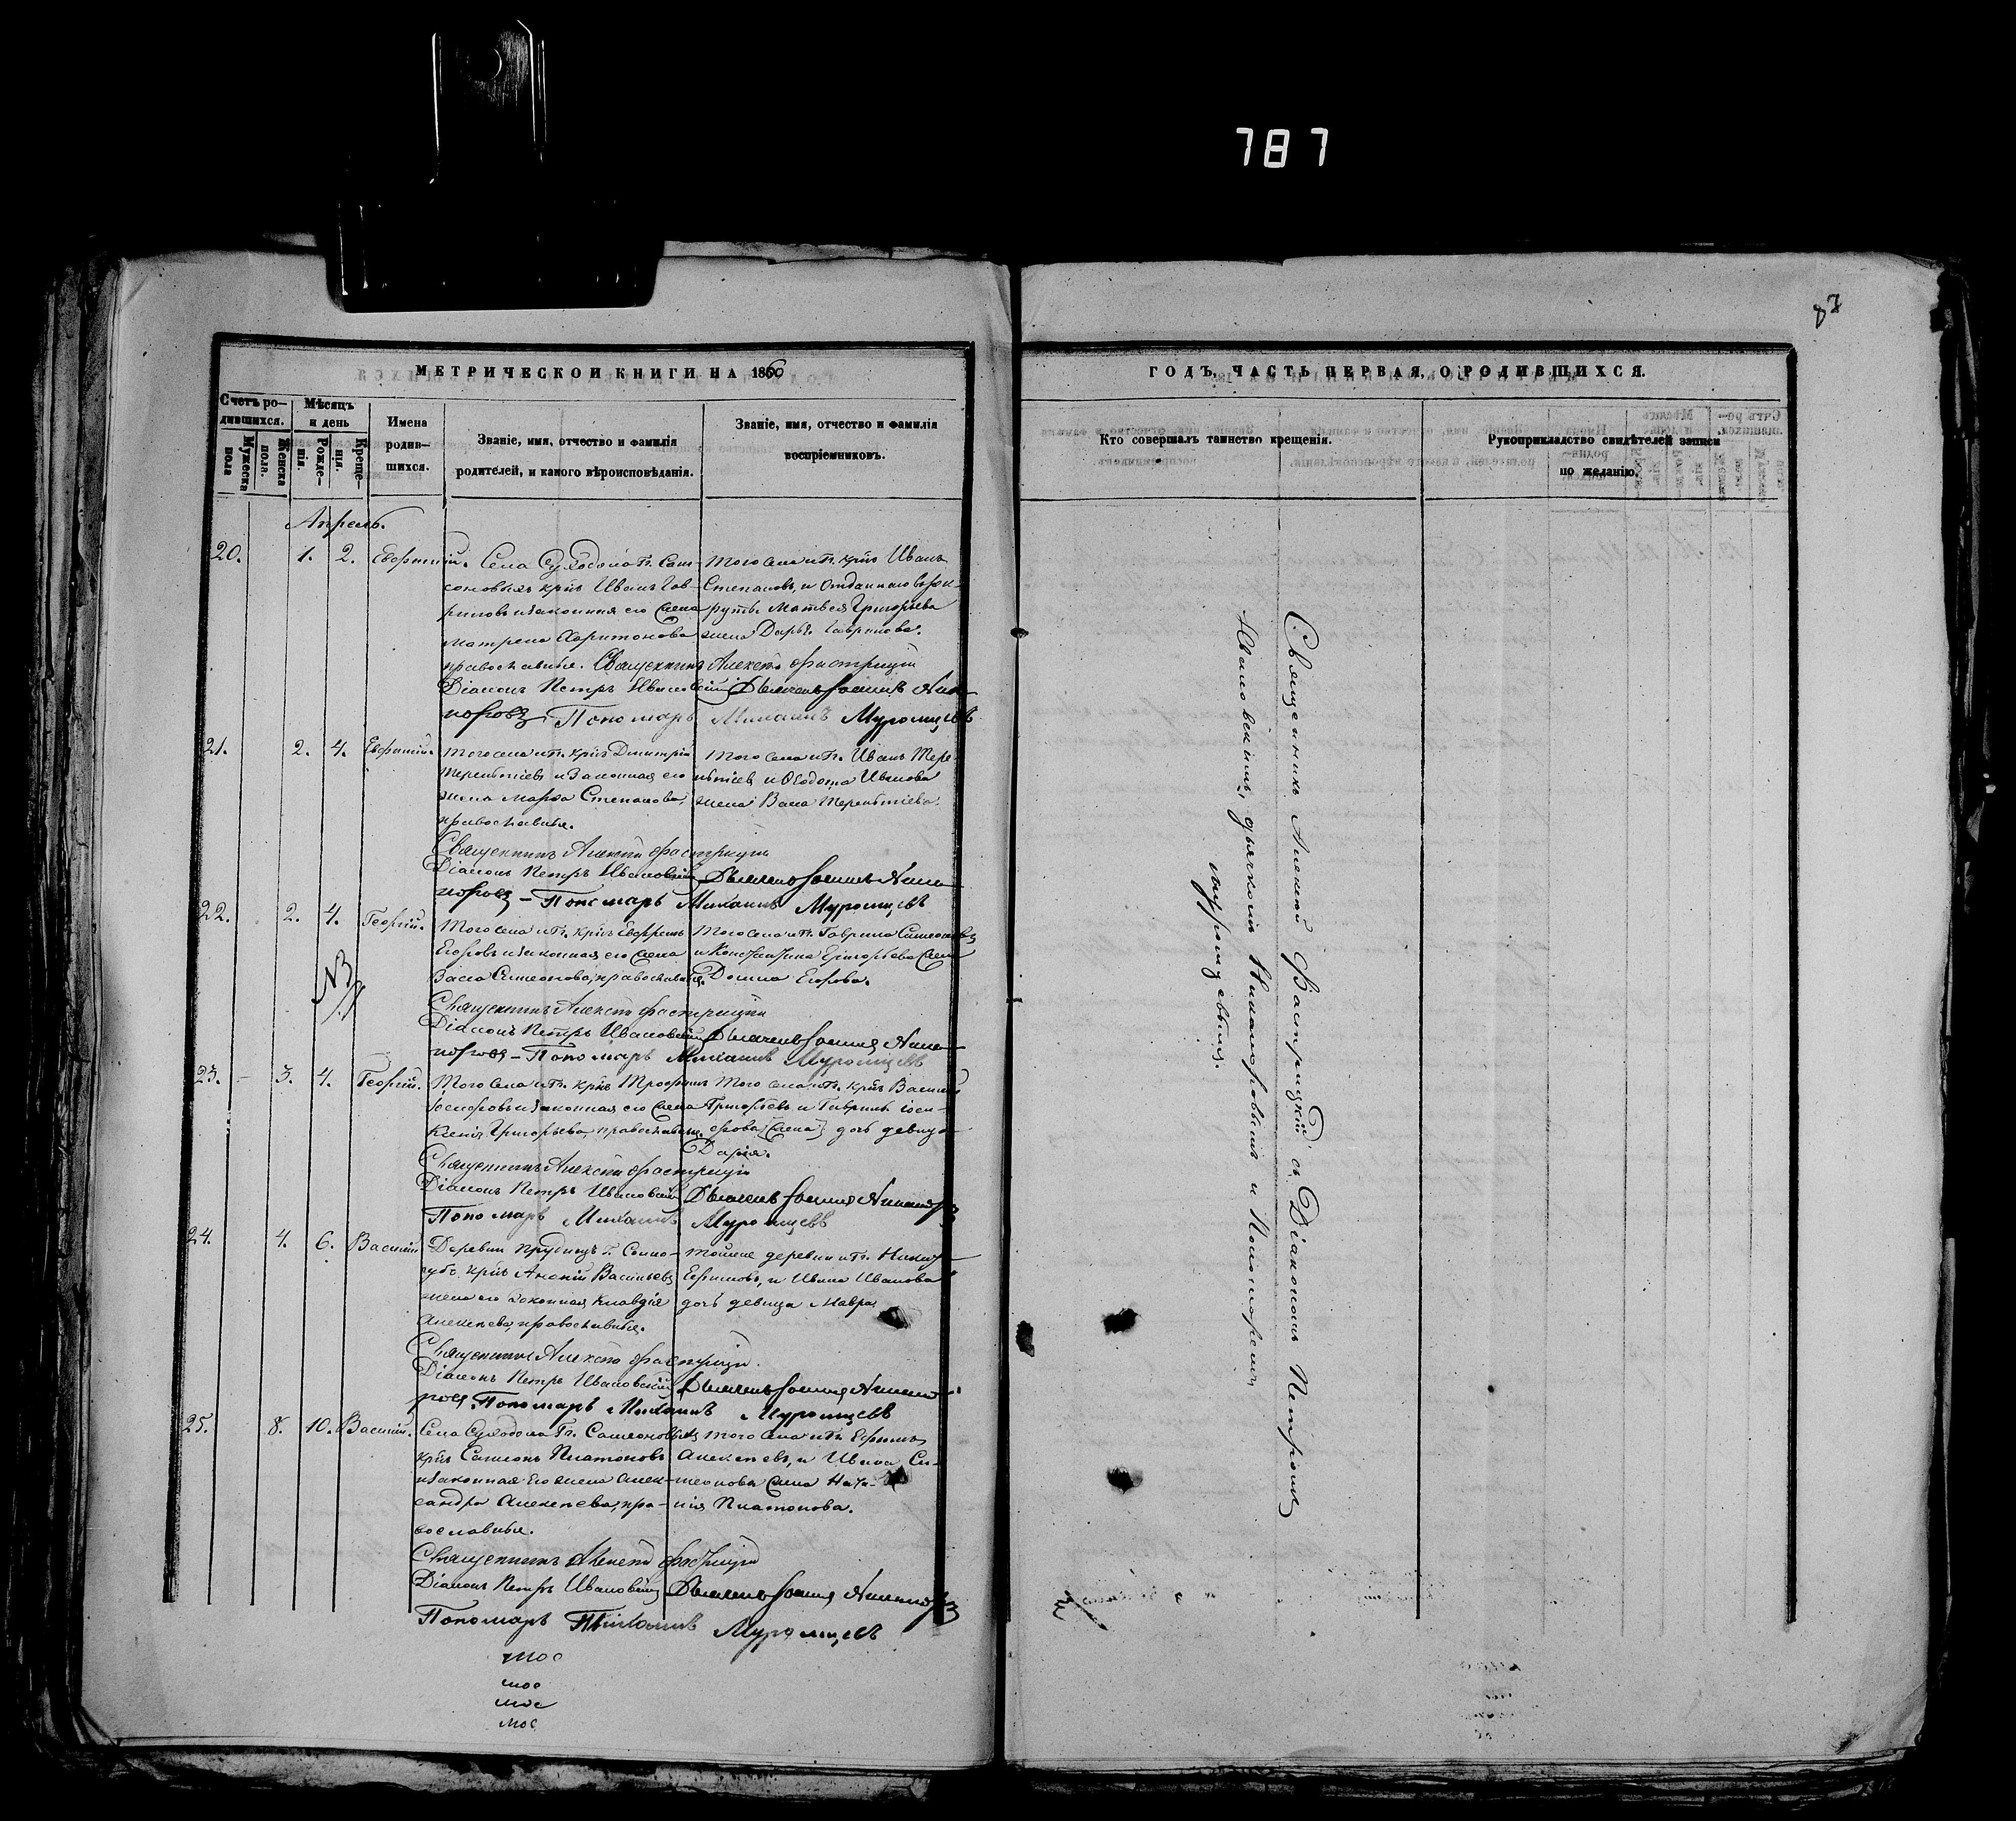 787
87
МЕТРИЧЕСКОЙ КНИГИ НА 1860
Счетъ ро-
дившихся.
Мужеска
пола
Женска
пола.
Мѣсяцъ
и день
Рожде-
нія.
Креще-
нія.
Имена
родив-
шихся.
Званіе, имя, отчество и фамилія
родителей, и какого вѣроисповѣданія.
Званіе, имя, отчество и фамилія
воспріемниковъ.
Апрель.
20. 1. 2. Евфимій.
Села Суходола Гг.
крѣс Иванъ Гав-
риловъ и законная его жена
Матрена Харитонова
православные.
Того села и Гг. крѣс Иванъ
Степановъ, и отданнаго въ рек-
руты Матвея Григорьева
жена Дарья Гаврилова.
Священникъ Алексѣй Фастрицкій
Діаконъ Петръ Ивановскій Дьячекъ Іоаннъ Ника-
норовъ Пономарь Михаилъ Муромцевъ
21. 2. 4. Евфимій.
Того села и Гг. крѣс Димитрій
Терентіевъ и законная его
жена Марѳа Степанова,
православные.
Того села и Гг. Иванъ Тере-
нтіевъ и Ѳедота Иванова
жена Васа Терентіева.
Священникъ Алексѣй Фастрицкій
Діаконъ Петръ Ивановскій Дьячекъ Іоаннъ Ника-
норовъ - Пономарь Михаилъ Муромцевъ
22. 2. 4. Георгій.
Того села и Гг. крѣс Евфремъ
Егоровъ и законная его жена
Васса Симеонова, православные.
Того села и Гг. Гаврила Симеоновъ
и Константина Григорьева жена
Домна Егорова.
NB
Священникъ Алексѣй Фастрицкій
Діаконъ Петръ Ивановскій Дьячекъ Іоаннъ Ника-
норовъ - Пономарь Михаилъ Муромцевъ
23. 3. 4. Георгій.
Того села и Гг. крѣс Трофимъ
Іосифовъ и законная его жена
Ксенія Григорьева, православные.
Того села и Гг. крѣс Василій
Григорьевъ и Гаврила Іоси-
фова [жена] дочь девица
Дарія.
Священникъ Алексѣй Фастрицкій
Діаконъ Петръ Ивановскій Дьячекъ Іоаннъ Никаноровъ
Пономарь Михаилъ Муромцевъ
24. 4. 6. Василій
Деревни Прудищъ Г.
крѣс Василіевъ
жена его законная Клавдія
Алексѣева, православные.
Тойже деревни и Гг.
Ефимовъ, и Ивана Иванова
дочь девица Мавра
Священникъ Алексѣй Фастрицкій.
Діаконъ Петръ Ивановскій Дьячекъ Іоаннъ Никано-
ровъ. Пономарь Михаилъ Муромцевъ
25. 8. 10. Василій.
Села Суходола Гг.
крѣс Самсонъ Платоновъ
и законная его жена Алек-
сандра Алексѣева, пра-
вославные.
Того села и Гг. Ефимъ
Алексѣевъ, и Ивана Си-
меонова жена Ната-
лія Платонова.
Священникъ Алексѣй Фастрицкій
Діаконъ Петръ Ивановскій Дьячекъ Іоаннъ Никаноровъ
Пономарь Михаилъ Муромцевъ
ГОДЪ, ЧАСТЬ ПЕРВАЯ, О РОДИВШИХСЯ.
Кто совершалъ таинство крещенія.
Рукоприкладство свидѣтелей записи
по желанію.
Священникъ Алексѣй Фастрицкій съ Діакономъ Петромъ
Ивановскимъ, дьячкомъ Никаноровымъ и Пономаремъ
Муромцевымъ.